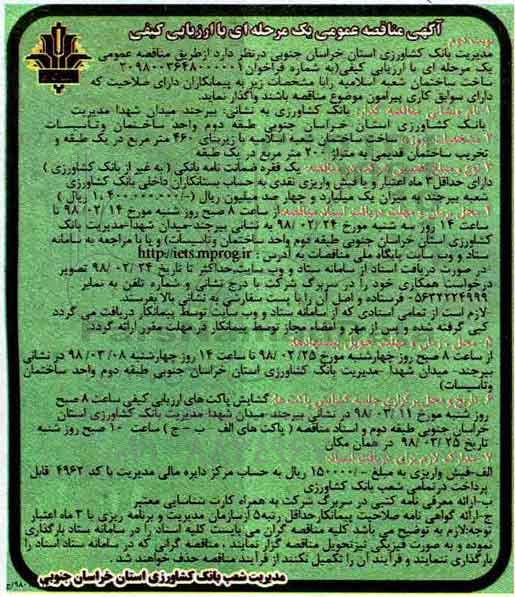 آگهی مناقصه عمومی یک مرحله ای با ارزیابی کیفی
نوبت دوم
مدیریت بانک کشاورزی استان خراسان جنوبی درنظر دارد ازطریق مناقصه عمومی
یک مرحله ای با ارزیابی کیفی(به شماره فراخوان ۲۰۹۸۰۰۳۶۴۸۰۰۰۰۰۱)
ساخت ساختمان شعبه اسلامیه رابا مشخصات زیر به پیمانکاران دارای صلاحیت که
دارای سوابق کاری پیرامون موضوع مناقصه باشند واگذار نماید.
۱ نام ونشانی مناقصه گذار: بانک کشاورزی به نشانی: بیرجند میدان شهدا مدیریت
بانک کشاورزی استان خراسان جنوبی طبقه دوم واحد ساختمان وتاسیسات
۲ مشخصات پروژه: ساخت ساختمان شعبه اسلامیه با زیربنای ۴۶۰ متر مربع در یک طبقه و
تخریب ساختمان قدیمی به متراژ ۲۰۰ متر مربع در یک طبقه
۳ یک فقره ضمانت نامه بانکی ( به غیر از بانک کشاورزی )
دارای حداقل۳ ماه اعتبار و یا فیش واریزی نقدی به حساب بستانکاران داخلی بانک کشاورزی
شعبه بیرجند به میزان یک میلیارد و چهار صد میلیون ریال (-/۱.۴۰۰.۰۰۰.۰۰۰ ریال )
۴ محل زمان و مهلت دریافت اسناد مناقصه:از ساعت ۸ صبح روز شنبه مورخ ۹۸/۰۲/۱۴ تا
ساعت ۱۴ روز سه شنبه مورخ ۹۸/۰۲/۲۴ به نشانی بیرجند-میدان شهدا-مدیریت بانک
کشاورزی استان خراسان جنوبی طبقه دوم واحد ساختمان وتاسیسات) و یا با مراجعه به سامانه
ستاد و وب سایت پایگاه ملی مناقصات به آدرس : http://iets.mprog.ir
-در صورت دریافت اسناد از سامانه ستاد و وب سایت،حداکثر تا تاریخ ۹۸/۰۲/۲۴ تصویر
درخواست همکاری خود را در سربرگ شرکت با درج نشانی و شماره تلفن به نمابر
۰۵۶۳۲۲۲۴۹۹۹ فرستاده و اصل آن را با پست سفارشی به نشانی بالا بفرستند.
-لازم است از تمامی اسنادی که از سامانه ستاد و وب سایت توسط پیمانکار دریافت می گردد
کپی گرفته شده و پس از مهر و امضاء مجاز توسط پیمانکار در مهلت مقرر ارائه گردد.
۵ محل ، زمان و مهلت تحویل پیشنهادها:
از ساعت ۸ صبح روز چهارشنبه مورخ ۹۸/۰۲/۲۵ تا ساعت ۱۴ روز چهارشنبه ۹۸/۰۳/۰۸ در نشانی
بیرجند- میدان شهدا -مدیریت بانک کشاورزی استان خراسان جنوبی طبقه دوم واحد ساختمان
وتاسیسات)
۶ تاریخ و محل برگزاری جلسه گشایش پاکت ها: گشایش پاکت های ارزیابی کیفی ساعت ۸ صبح
روز شنبه مورخ ۹۸/۰۳/۱۱ در نشانی بیرجند-میدان شهدا-مدیریت بانک کشاورزی استان
خراسان جنوبی طبقه دوم و اسناد مناقصه ( پاکت های الف - ب - ج ) ساعت ۱۰ صبح روز شنبه
تاریخ ۹۸/۰۳/۲۵ در همان مکان
۷ مدارک لازم برای دریافت اسناد:
الف-فیش واریزی به مبلغ -/۱۵۰۰۰۰۰ ریال به حساب مرکز دایره مالی مدیریت با کد ۴۹۶۲ قابل
پرداخت درتمامی شعب بانک کشاورزی
ب-ارائه معرفی نامه کتبی در سربرگ شرکت به همراه کارت شناسایی معتبر
ج-ارائه گواهی نامه صلاحیت پیمانکار،حداقل رتبه۵ ازسازمان مدیریت و برنامه ریزی با ۳ ماه اعتبار
توجه:لازم به توضیح می باشد کلیه مناقصه گران می بایست کلیه اسناد را در سامانه ستاد بارگذاری
نموده و به صورت فیزیکی نیزتحویل مناقصه گزار نمایند ، مناقصه گرانی که در سامانه ستاد اسناد را
بارگذاری ننمایند و فرآیند آن را تکمیل نکنند از فرآیند مناقصه حذف خواهند شد .
مدیریت شعب بانک کشاورزی استان خراسان جنوبی